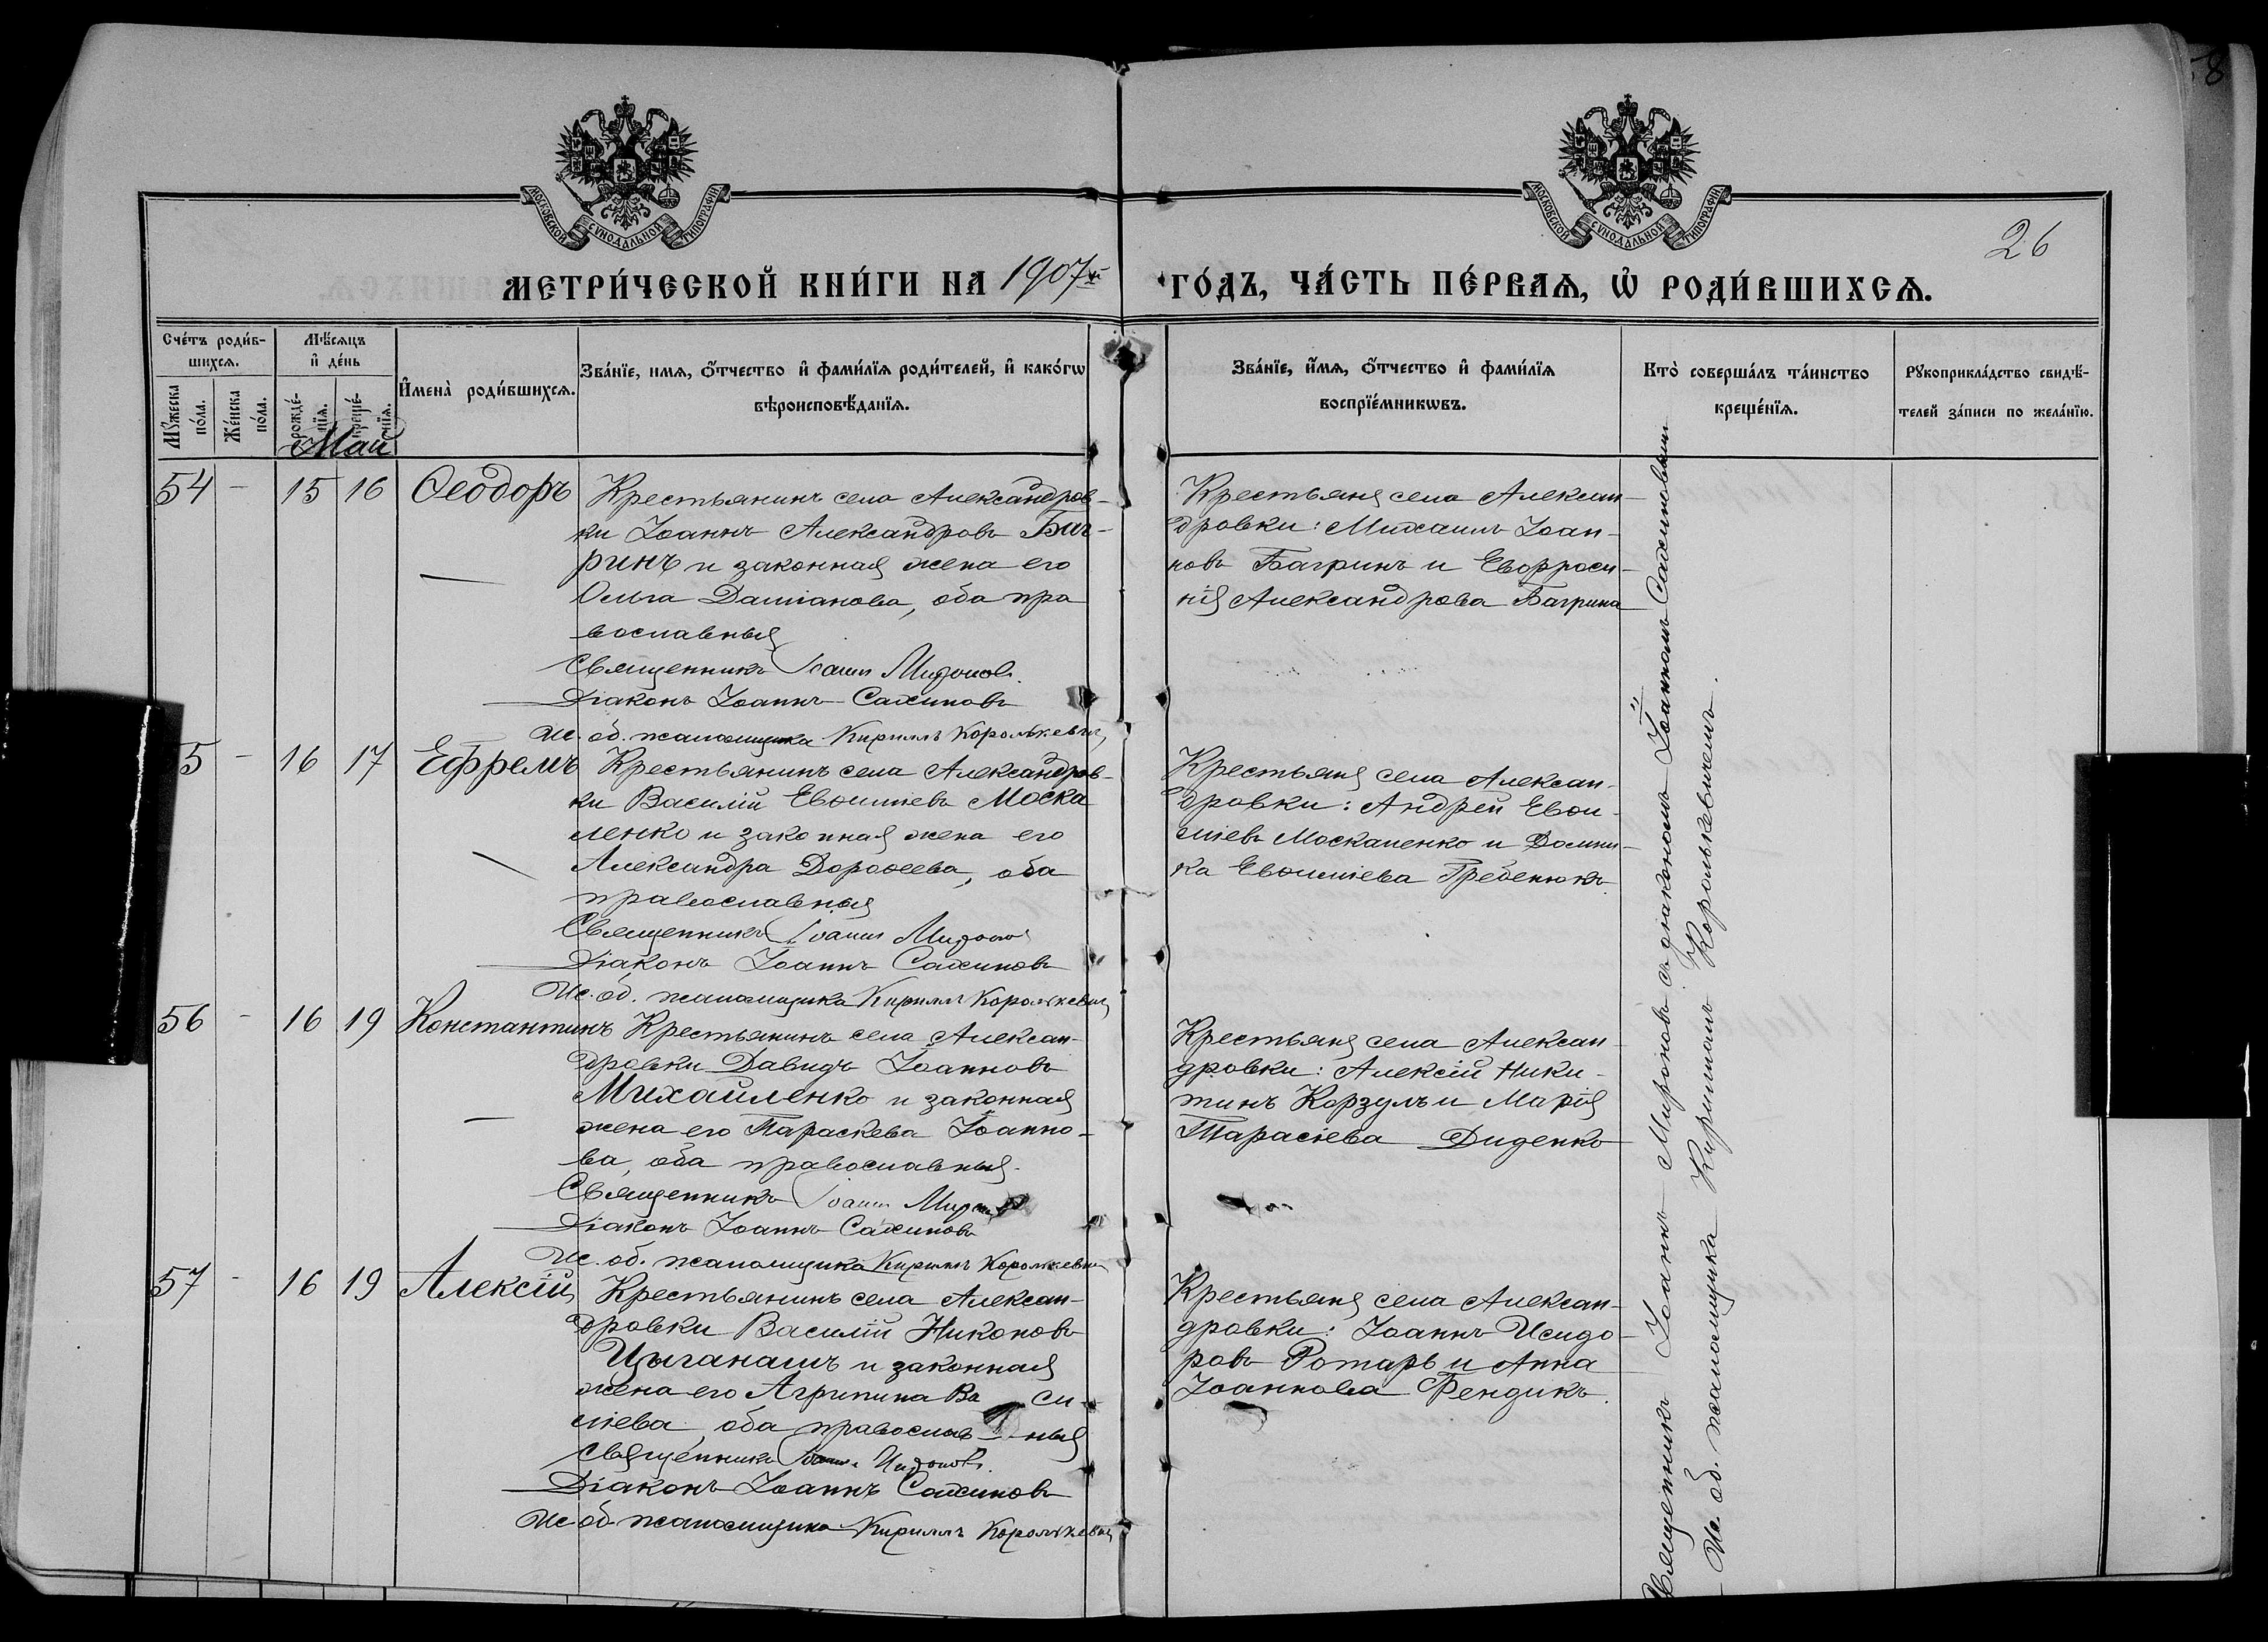 МОСКОВСКОЙ СУНОДАЛЬНОЙ ТИПОГРАФІИ
МОСКОВСКОЙ СУНОДАЛЬНОЙ ТИПОГРАФІИ
26
МЕТРИ́ЧЕСКОЙ КНИ́ГИ НА 1907й
ГО́ДЪ, ЧА́СТЬ ПЕ́РВАѦ, Ѡ҆ РОДИ́ВШИХСѦ.
Сче́тъ роди́в-
шихсѧ.
Мѹ́жеска по́ла.
Же́нска по́ла.
Мѣ́сѧцъ
и҆ де́нь
рожде́-
нїѧ.
креще́-
нїѧ.
Май
И҆мена̀ роди́вшихсѧ.
Зва́нїе, имѧ, ѻ҆́тчество и҆ фами́лїѧ роди́телей, и҆ како́гѡ
вѣроисповѣ́данїѧ.
Зва́нїе, и҆́мѧ, ѻ҆́тчество и҆ фами́лїѧ
воспрїе́мникѡвъ.
Кто̀ соверша́лъ та́инство
креще́нїѧ.
Рѹкоприкла́дство свидѣ́-
телей за́писи по жела́нїю.
54 - 15 16 Ѳеодоръ
Крестьянинъ села Александров-
ки Іоаннъ Александровъ Баг-
ринъ и законная жена его
Ольга Даміанова, оба пра
вославныя
Священникъ Іоаннъ Мироновъ.
Діаконъ Іоаннъ Сахиновъ
Ис. об. псаломщика Кириллъ Королькевичъ
Крестьяне села Алексан-
дровки: Михаилъ Іоан-
новъ Багринъ и Евфроси-
нія Александрова Багрина
5 - 16 17 Ефремъ
Крестьянинъ села Александров-
ки Василій Евѳиміевъ Моска
ленко и законная жена его
Александра Дороѳеева, оба
православныя
Священникъ Іоаннъ Мироновъ
Діаконъ Іоаннъ Сахиновъ
Ис. об. псаломщика Кириллъ Королькевичъ
Крестьяне села Алексан-
дровки: Андрей Евѳи-
міевъ Москаленко и Домни-
ка Евѳиміева Гребенюкъ.
56 - 16 19 Константинъ
Крестьянинъ села Алексан-
дровки Давидъ Іоанновъ
Михайленко и законная
жена его Параскева Іоанно-
ва, оба православныя.
Священникъ Іоаннъ
Діаконъ Іоаннъ Сахиновъ
Ис. об. псаломщика Кириллъ Королькевичъ
Крестьяне села Алексан-
дровки: Алексій Ники-
тинъ Корзулъ и Марія
Тарасіева Диденко
57 - 16 19 Алексій
Крестьянинъ села Алексан-
дровки Василій Никоновъ
Цыганашъ и законная
жена его Агрипина Васи-
ліева, оба православныя
Священникъ Іоаннъ Мироновъ.
Діаконъ Іоаннъ Сахиновъ
Ис. об. псаломщика Кириллъ Королькевичъ
Крестьяне села Алексан-
дровки: Іоаннъ Исидо-
ровъ Ротарь и Анна
Іоаннова Фендикъ.
Священникъ Іоаннъ Мироновъ съ діакономъ Іоанномъ Сахиновымъ
Ис. об. псаломщика Кирилломъ Королькевичемъ.